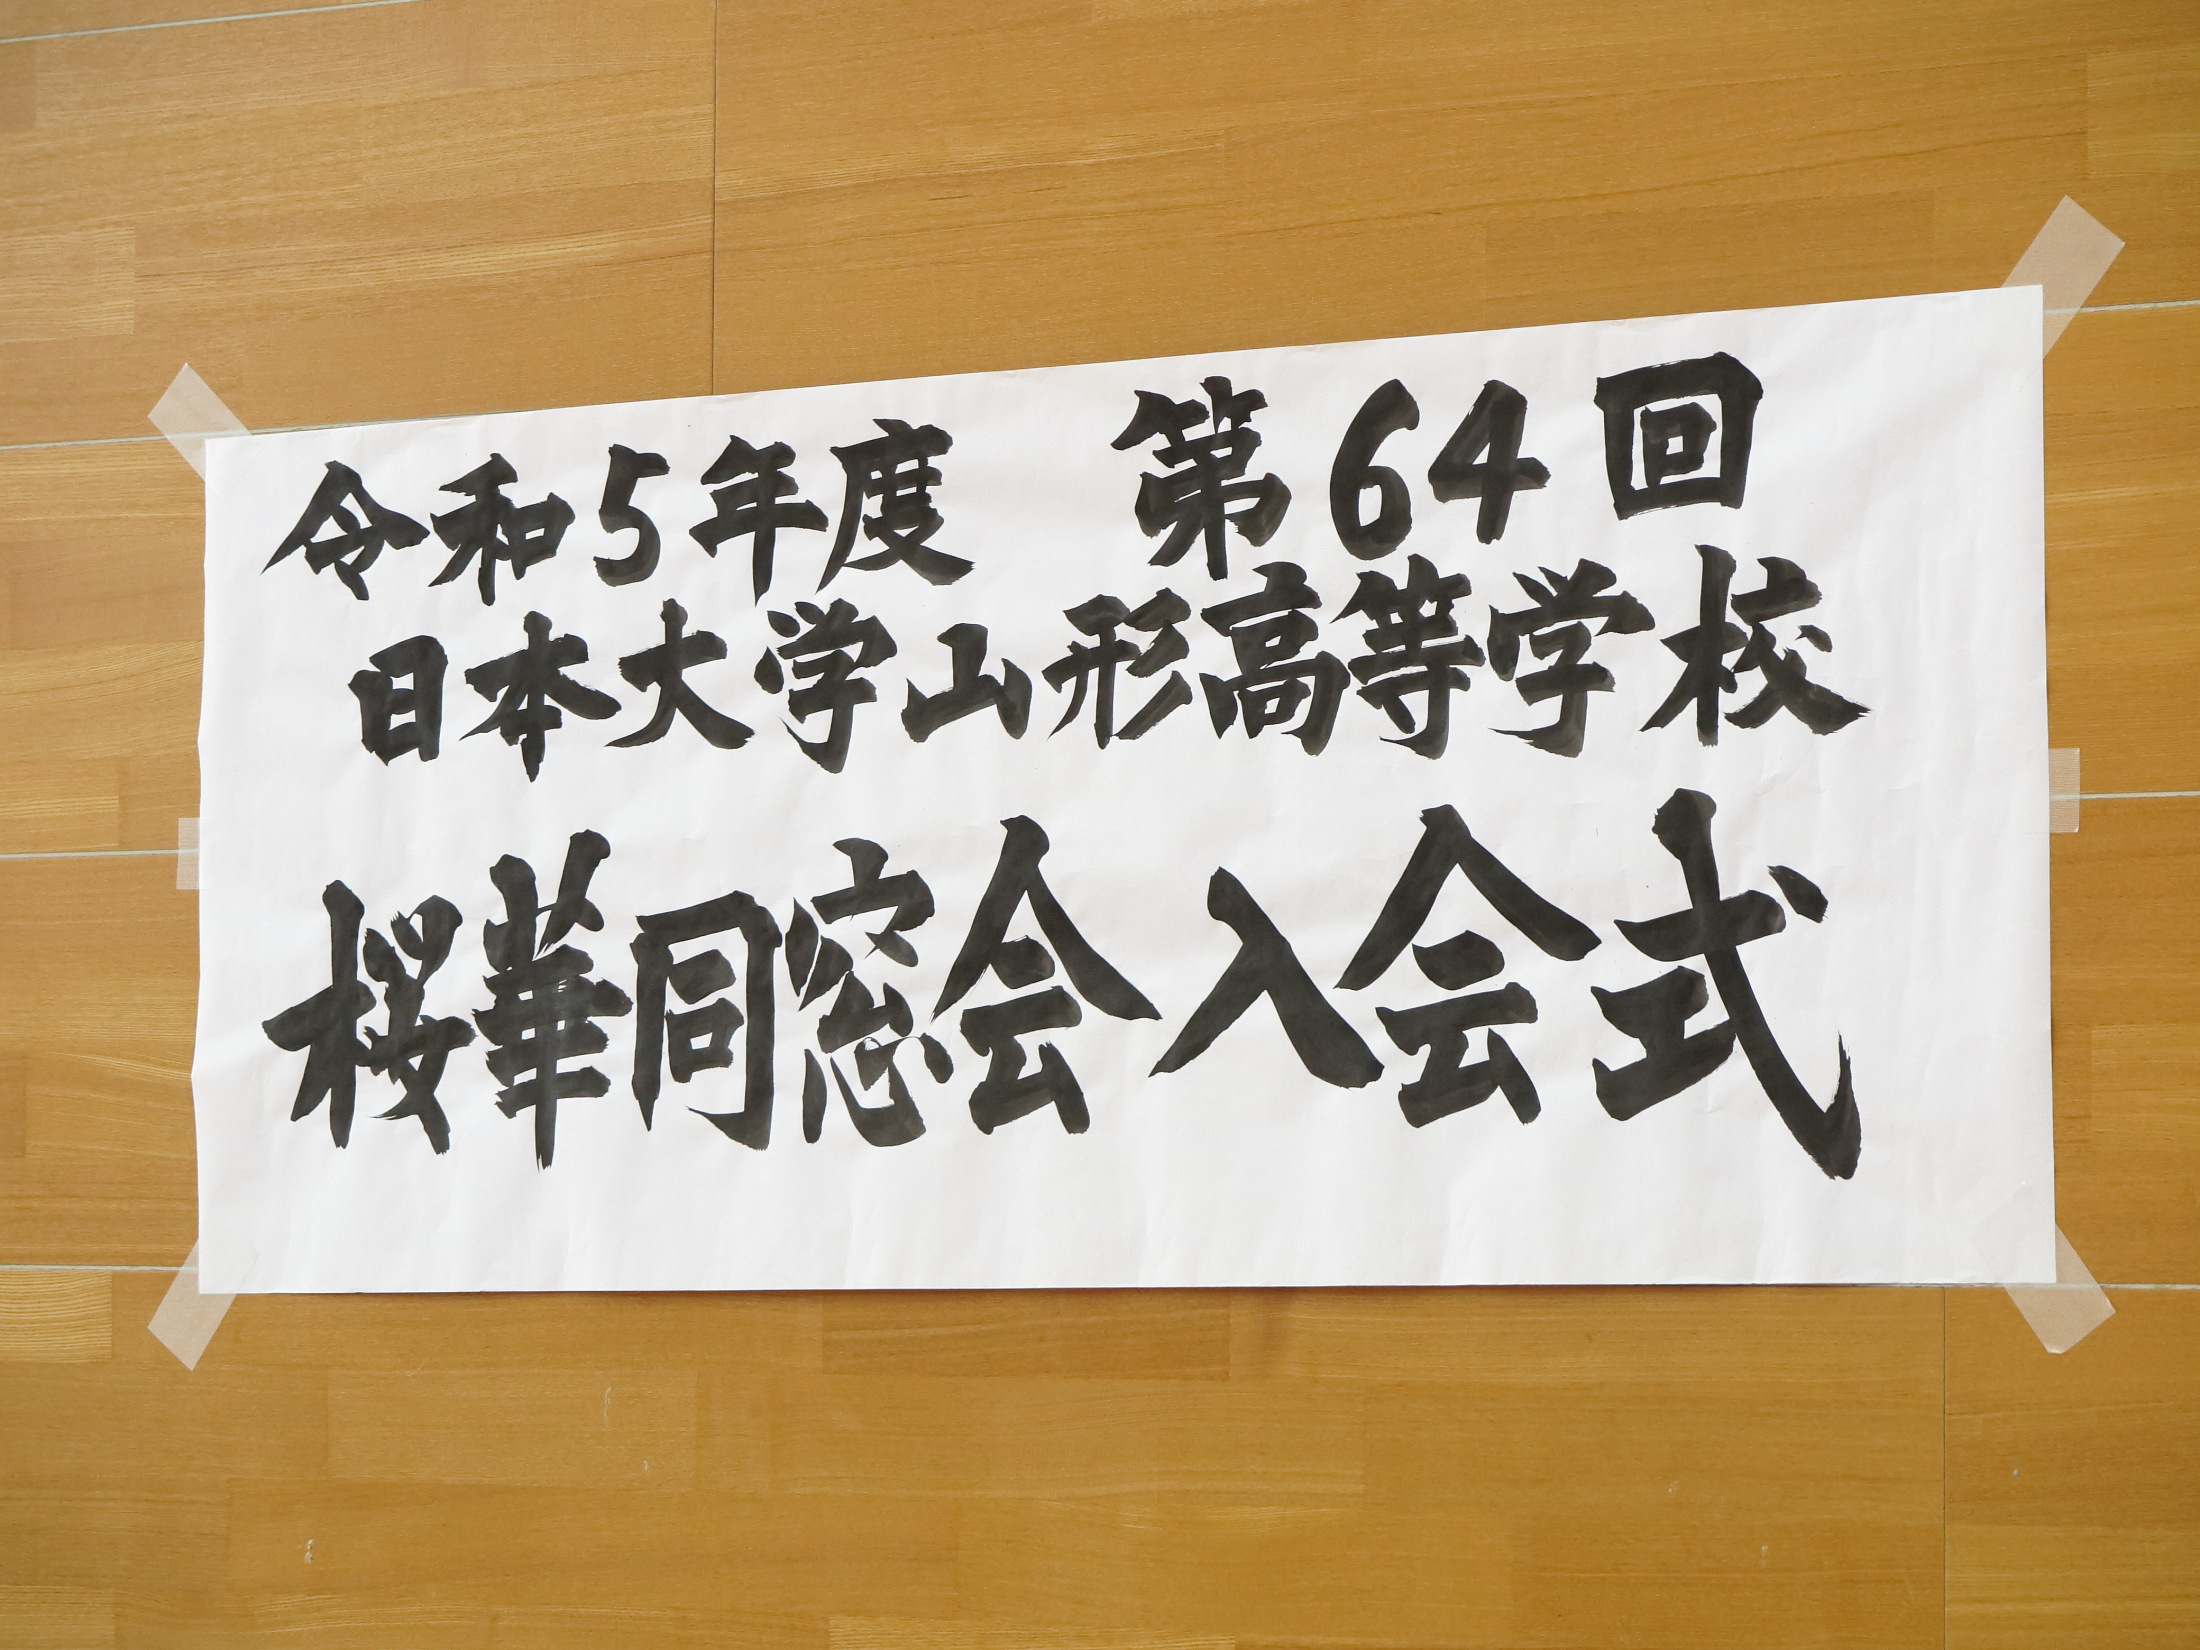 令和5年度　第64回
日本大学山形高等学校
桜華同窓会入会式